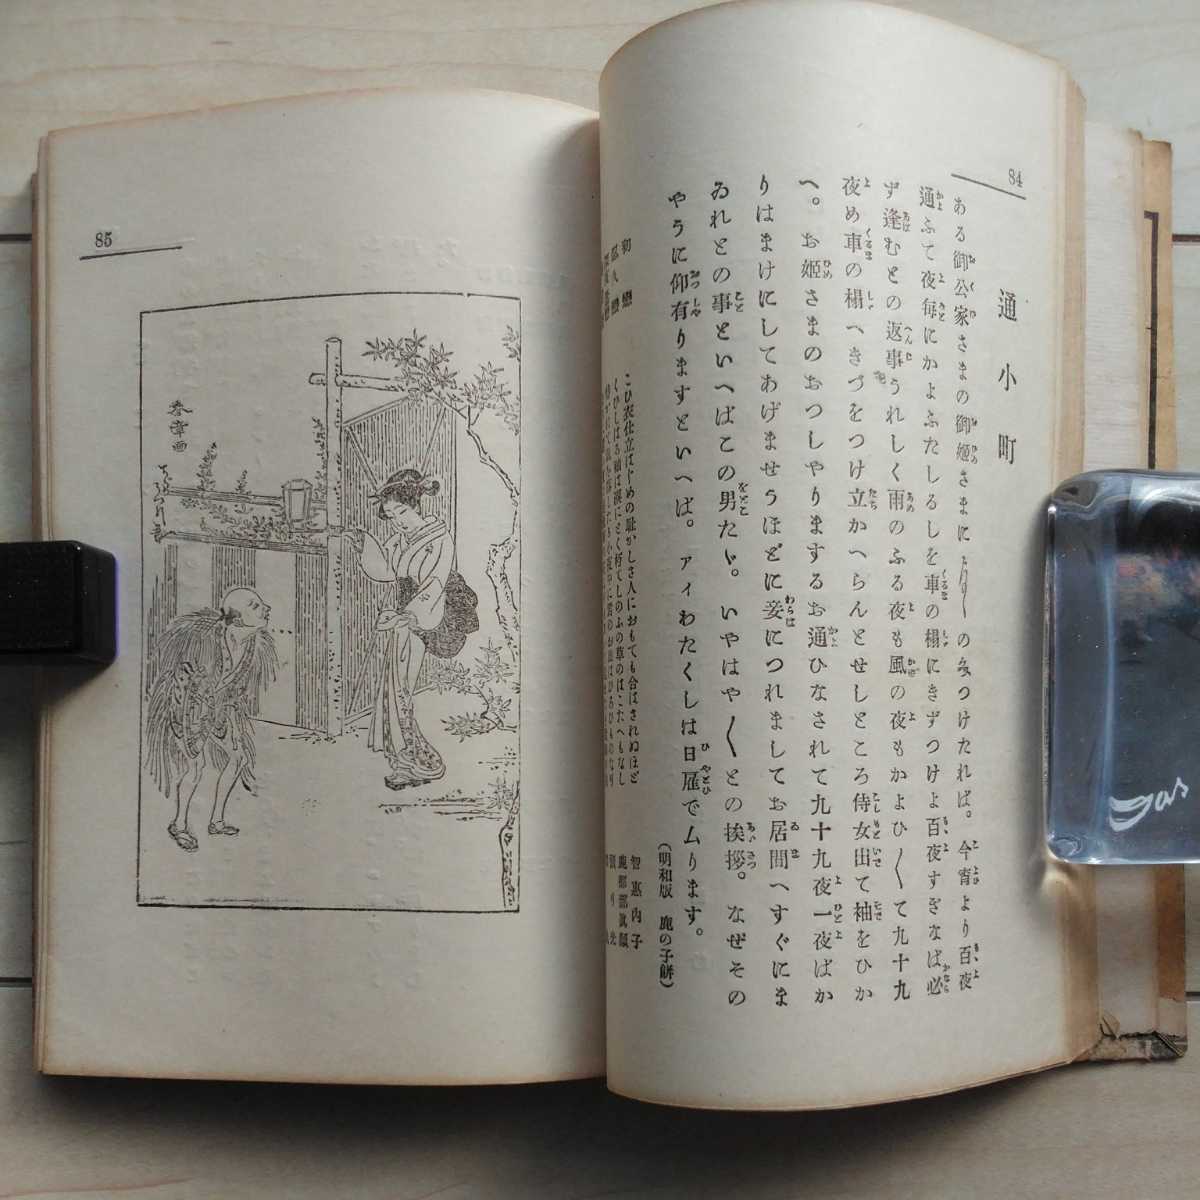 84
通小町
ある御公家さまの御姫さまに の文つけたれば。今宵より百夜
通ふて夜毎にかよふたしるしを車の榻にきずつけよ百夜すぎなば必
ず逢むとの返事うれしく雨のふる夜も風の夜もかよひ〱て九十九
夜め車の榻へきづをつけ立かへらんとせしところ侍女出て袖をひか
へ。お姫さまのおつしやりまするお通ひなされて九十九夜一夜ばか
りはまけにしてあげませうほどに妾につれましてお居間へすぐにま
ゐれとの事といへばこの男たゝ。いやはや〱との挨拶。なぜその
やうに仰有りますといへば。アイわたくしは日雇でムります。
(明和版 鹿の子餅)
初戀
こひ衣仕立ばじめの耻かしさ人におもても合はされぬほど
智惠内子
忍久戀
くひしばる袖は涙にとく朽てしのふの草のはこたへもなし
鹿都部眞顏
85
春章画